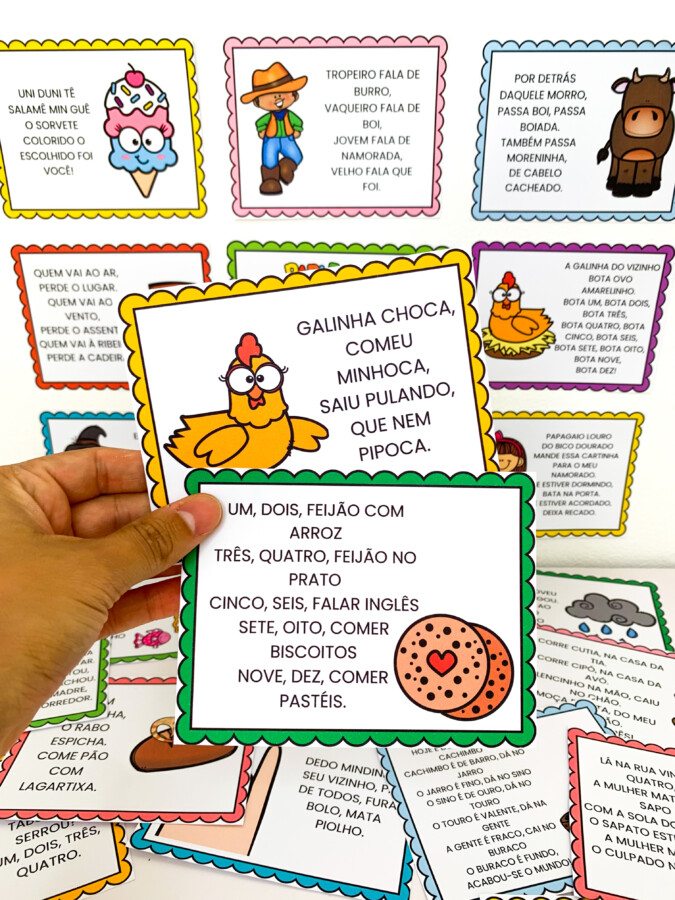 UNI DUNI TÊ
SALAMÊ MIN GUÊ
O SORVETE
COLORIDO O
ESCOLHIDO FOI
VOCÊ!
TROPEIRO FALA DE
BURRO,
VAQUEIRO FALA DE
BOI,
JOVEM FALA DE
NAMORADA,
VELHO FALA QUE
FOI.
POR DETRÁS
DAQUELE MORRO,
PASSA BOI, PASSA
BOIADA.
TAMBÉM PASSA
MORENINHA,
DE CABELO
CACHEADO.
QUEM VAI AO AR,
PERDE O LUGAR.
QUEM VAI AO
VENTO,
PERDE O ASSENT
QUEM VAI À RIBEI
PERDE A CADEIR
A GALINHA DO VIZINHO
BOTA OVO
AMARELINHO.
BOTA UM, BOTA DOIS,
BOTA TRÊS,
BOTA QUATRO, BOTA
CINCO, BOTA SEIS,
BOTA SETE, BOTA OITO,
BOTA NOVE,
BOTA DEZ!
GALINHA CHOCA,
COMEU
MINHOCA,
SAIU PULANDO,
QUE NEM
PIPOCA.
PAPAGAIO LOURO
DO BICO DOURADO
MANDE ESSA CARTINHA
PARA O MEU
NAMORADO.
E ESTIVER DORMINDO,
BATA NA PORTA.
E ESTIVER ACORDADO,
DEIXA RECADO.
UM, DOIS, FEIJÃO COM
ARROZ
TRÊS, QUATRO, FEIJÃO NO
PRATO
CINCO, SEIS, FALAR INGLÊS
SETE, OITO, COMER
BISCOITOS
NOVE, DEZ, COMER
PASTÉIS.
CORRE CUTIA, NA CASA DA
TIA.
CORRE CIPÓ, NA CASA DA
AVÓ.
LENCINHO NA MÃO, CAIU
NO CHÃO.
MOÇA
DO MEU
O RABO
ESPICHA.
COME PÃO
COM
LAGARTIXA.
DEDO MINDIN
SEU VIZINHO, P
DE TODOS, FURA
BOLO, MATA
PIOLHO.
CACHIMBO
CACHIMBO É DE BARRO, DÁ NO
JARRO
O JARRO É FINO, DÁ NO SINO
O SINO É DE OURO, DÁ NO
TOURO
O TOURO É VALENTE, DÁ NA
GENTE
A GENTE É FRACO, CAI NO
BURACO
O BURACO É FUNDO,
ACABOU-SE O MUNDO!
LÁ NA RUA VIN
QUATRO,
A MULHER MAT
SAPO
COM A SOLA DO
O SAPATO EST
A MULHER M
O CULPADO N
SERROU!
UM, DOIS, TRÊS,
QUATRO.